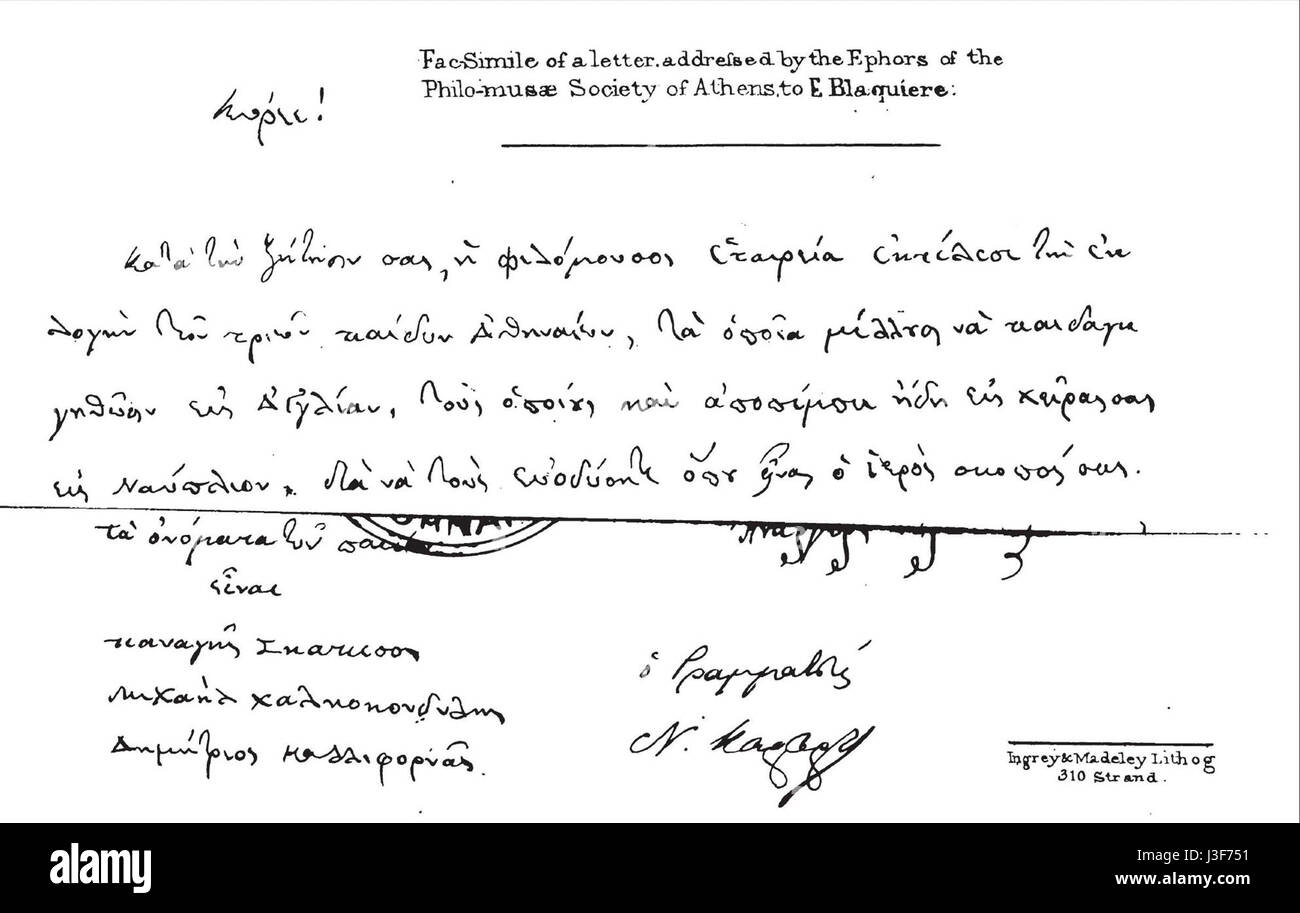 Fac-Simile of a letter. addreſsed by the Ephors of the
Philo-musæ Society of Athens, to E Blaquiere:
Κύριε!
Κατὰ τὴν ζήτησιν σας, ἡ φιλόμουσος ἑταιρεία ἐκτέλεσε τὴν ἐκ
λογὴν τῶν τριῶν παίδων Ἀθηναίων, τὰ ὁποῖα μέλλουν νὰ παιδαγω
γηθῶσιν εἰς Ἀγγλίαν, τοὺς ὁποίους καὶ ἀποπέμπει ἤδη εἰς χεῖρας σας
εἰς Ναύπλιον. διὰ νὰ τοὺς εὐοδώσητε ὅπου εἶναι ὁ ἱερὸς σκοπός σας.
τὰ ὀνόματα τῶν
εἶναι
Παναγῆς
Μιχαὴλ Χαλκοκονδύλης
Δημήτριος Καλλιφορνᾶς
ὁ Γραμματεύς
Ν.
Ingrey & Madeley Lithog
310 Strand.
alamy stock photo
J3F751
www.alamy.com